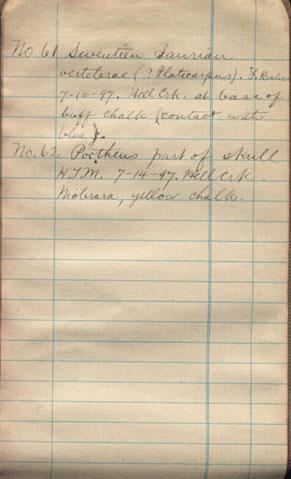 No 61 Seventeen Saurian
verteterae (? Platecarpus).
7-16-97. Hell Crk. at base of
buff chalk (contact with
blue).
No. 62 Portheus part of skull
H.T.M. 7-14-97. Hell Crk
Niobrara, yellow chalk.